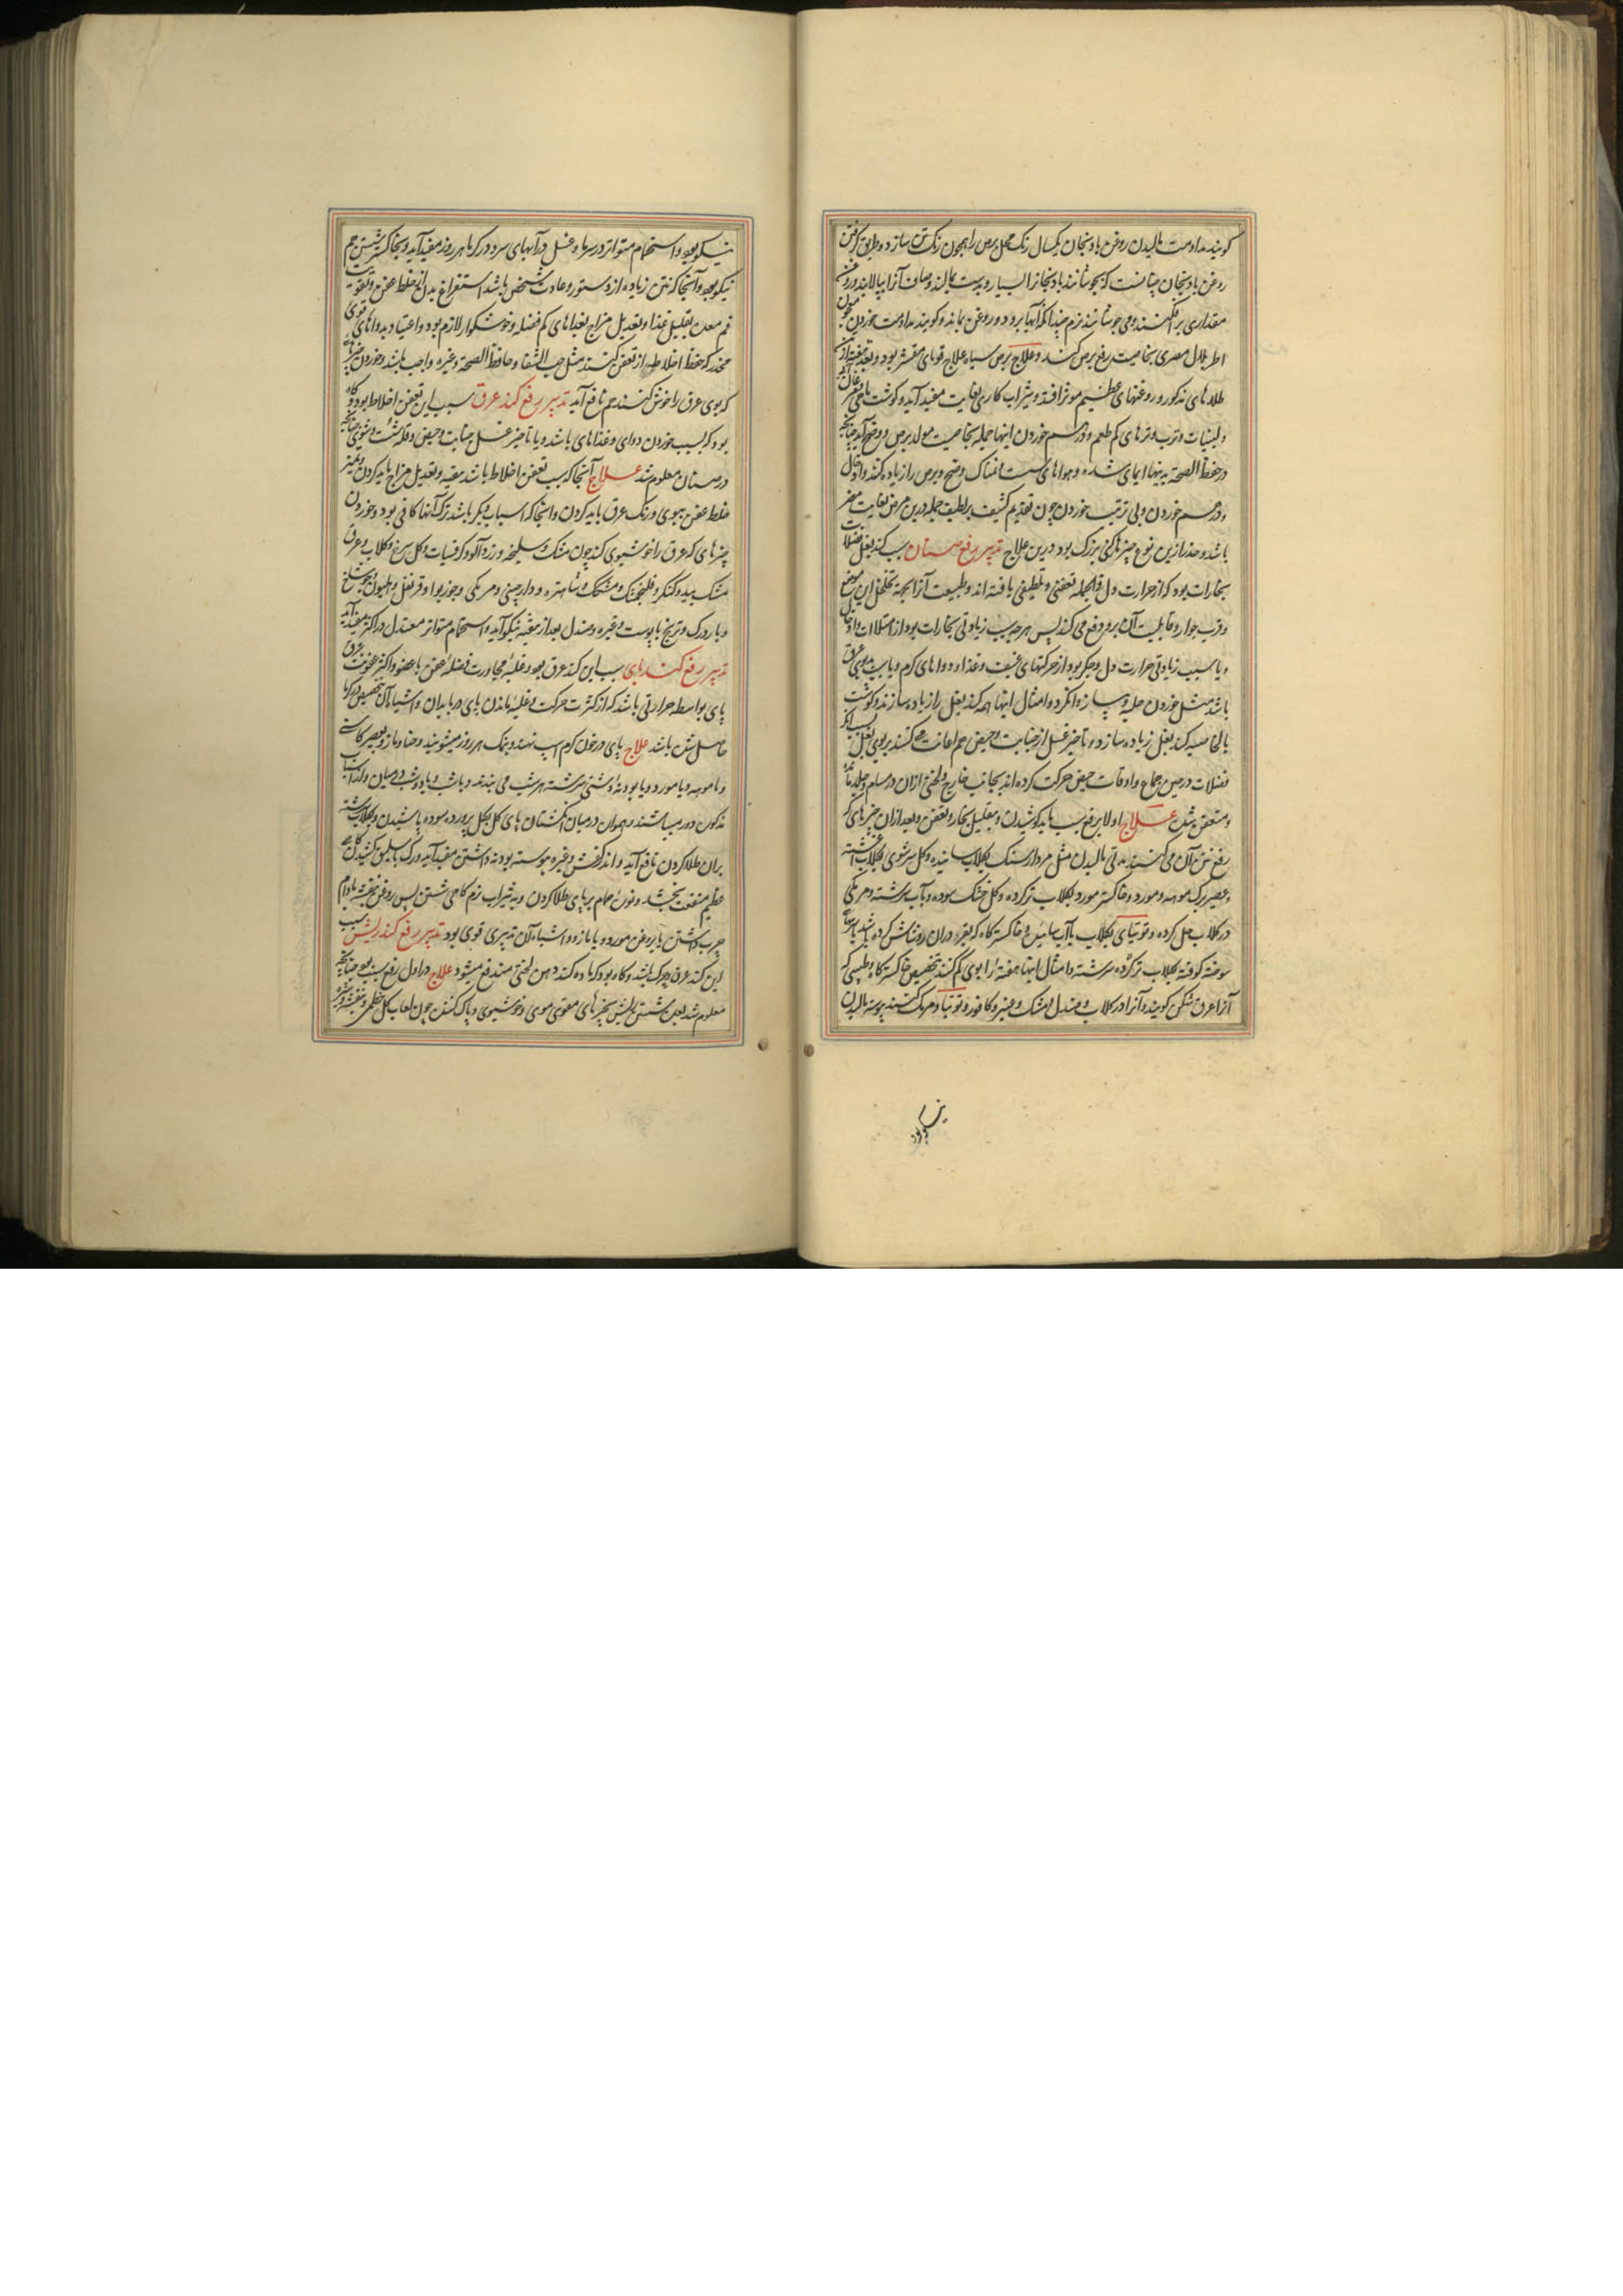 کویند مداومت مالیدن روغن بادنجان یکسال رنک محل برص را همچون رنک تن سازد و طریق کرفتن
روغن بادنجان چنانست که بجوشانند بادنجانرا بسیار و بدست بمالند و صاف آنرا بپالایند و روغن
مقداری برافکنند و می جوشانند نرم چندانکه آبها برود و روغن بماند و کویند مداومت خوردن
اطریلال مصری بخاصیت رفع برص کند و علاج برص سیاه علاج قوبای متقشر بود و بعد تنقیه
طلاهای مذکور و روغنهای عظیم موثر افتد و شراب کاری بغایت مفید آید و کوشت ماهی
و لبنیات و ترب و ترهای کم طعم و درهم خوردن اینها جمله بخاصیت مولد برص و وضح آمد چنانکه
در حفظ الصحة بدینها ایمای شده و هواهای سست و نمناک وضح و برص را زیاده کند و اکال
و درهم خوردن و بی ترتیب خوردن چون تقدیم کثیف بر لطیف جمله درین مرض بغایت مضر
باشد و حذر ازین نوع چیزها رکنی بزرک بود درین علاج تدبیر رفع صنان سبب کند بغل فضلات
بخارات بود که از حرارت دل فی الجمله تعفنی و تلطیفی یافته اند و طبیعت آنرا بجهة تخلخل این موضع
و قرب جوار و قابلیت آن برو دفع می کند پس هر چه سبب زیادتی بخارات بود از امتلاات
و یا سبب زیادتی حرارت دل و جکر بود از حرکتهای عنیف و غذاء و دواهای کرم و یا سبب بدبویی عرق
باشد مثل خوردن حلبه و پیاز و انکزد و امثال اینها همه کند بغل را زیاده سازند و کوشت
بالخاصیه کند بغل زیاده سازد و تاخیر غسل از جنابت و حیض هم اعانت میکنند بر بوی بغل
فضلات در حین جماع و اوقات حیض حرکت کرده اند بجانب خارج و لختی ازان در مسام و جلد مانده
و متعفن شدن علاج اولا برفع سبب باید کوشیدن و بتقلیل بخار و تعفن و بعد ازان چیزهای که
رفع نتن آن می کنند مدتی مالیدن مثل مردارسنک بکلاب سائیده و کل سرشوی بکلاب آغشته
و عصیر برک مورد و خاکستر مورد بکلاب تر کرده و کل خشک سوده و بآب سرشته و مر مکی
در کلاب حل کرده و توتیای بکلاب یا آب سائیده و خاکستر کاه که نقره دران روشاش کرده باشند
سوخته کوفته بکلاب تر کرده سرشته و امثال اینها هفتهٔ را بوی کم کنند بتخصیص خاکستر کاه و طبسی که
آنرا عرق شکن کویند و آنرا در کلاب و صندل و مشک و عنبر و کافور و توتیا و مرتک کنند پیوسته مالیدن
نیکو بود
نیکو بود و استحمام متواتر در سرما و غسل در آبهای سرد در کرما هر روز مفید آید و بخاکستر شستن هم
نیکو بود و آنجا که نتن زیاده از دستور و عادت شخص باشد استفراغ بدن از خلط عفن و تقویت
فم معده بتقلیل غذا و تعدیل مزاج بغذاهای کم فضله و خوشکوار لازم بود و اعتیاد بدواهای قوی
مخدر که حفظ اخلاط از تعفن کنند مثل حب الشفا و حافظ الصحة و غیره واجب باشد و خوردن چیزهای
که بوی عرق را خوش کنند هم نافع آید تدبیر رفع کند عرق سبب این تعفن اخلاط بود و کاه
بود که بسبب خوردن دوای و غذاهای باشد و یا تاخیر غسل جنابت و حیض و قلت شست و شوی چنانکه
در صنان معلوم شد علاج آنجا که سبب تعفن اخلاط باشد تنقیه و تعدیل مزاج باید کردن و تمیز
خلط عفن ببوی و رنک عرق باید کردن و آنجا که اسباب دیکر باشد ترک آنها کافی بود و خوردن
چیزهای که عرق را خوشبوی کند چون مشک و سلیخه و زردآلو و کرفسیات و کل سرخ و کلاب و عرق
مشک بید و کنکر و فلنجمشک و مشمشک و شاهتره و دارچینی و مر مکی و جوزبوا و قرنفل و هلیون و جوشانده
و بادرک و ترنج با پوست و غیره و صندل بعد از تنقیه نیکو آید و استحمام متواتر معتدل در اکثر مفید آید
تدبیر رفع کند پای سبب این کند عرق بود و غلبهٔ مجاورت فضلهٔ عفن با عضو و اکثر عفونت عرق
پای بواسطه حرارتی باشد که از کثرت حرکت و غلبهٔ ماندن پای در پایدان و اشباه آن بتخصیص در کرما
حاصل شده باشد علاج پای در خون کرم اسب نهند و بنمک هر روز میشویند و حنا و مازو بعصیر کاسنی
و یا مورد و یا بودنهٔ دشتی سرشته هر شب می بندند و یا شب و یا دو شب در میان و از اسباب
مذکور دور میباشند و همواره در میان انکشتان پای کل بکل پرورده سوده پاشیدن و بکلاب سرشته
بران طلا کردن نافع آید و اندر کفش و غیره پیوسته بودنه داشتن مفید آید و رک باسلیق کشیدن کاهی
عظیم منفعت بخشد و نورهٔ حمام بر پای طلا کردن و به شراب نرم کاهی شستن پس روغن بنفشه بادام
چرب داشتن یا بروغن مورد و یا مازو و اشباه آن تدبیری قوی بود تدبیر رفع کند ریش سبب
این کند عرق و چرک باشد و کاه بود که ماده کند دهن لختی مندفع میشود علاج در اول رفع سبب بود چنانکه
معلوم شد بعد شستن ریش بچیزهای مقوی موی و خوشبوی و پاک کننده چون لعاب کل خطمی و بنفشه و غیره